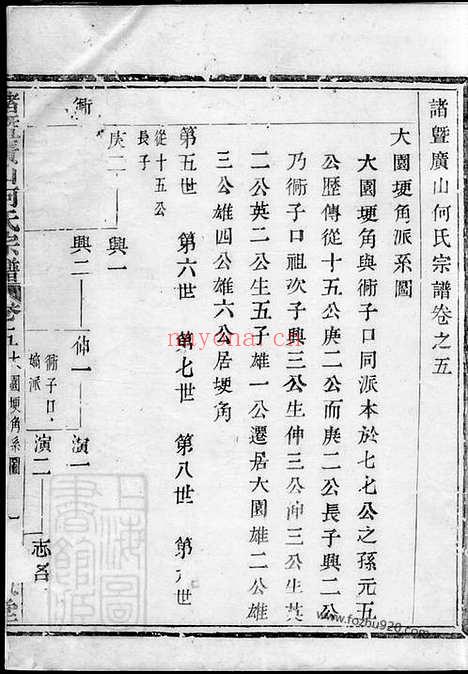 諸暨廣山何氏宗譜卷之五
大園埂角派系圖
大園埂角與衕子口同派本於七七公之孫元五
公歷傳從十五公庚二公而庚二公長子興二公
乃衕子口祖次子興三公生伸三公伸三公生英
二公英二公生五子雄一公遷居大園雄二公雄
三公雄四公雄六公居埂角
第五世 第六世 第七世 第八世 第九世
從十五公
長子
庚二 興一
衕 興二 伸一 演一
衕子口
嫡派
演二
諸暨廣山何氏宗譜 卷五 大園埂角系圖 一
上海圖書館
nayona.cn
www.fozhu920.com